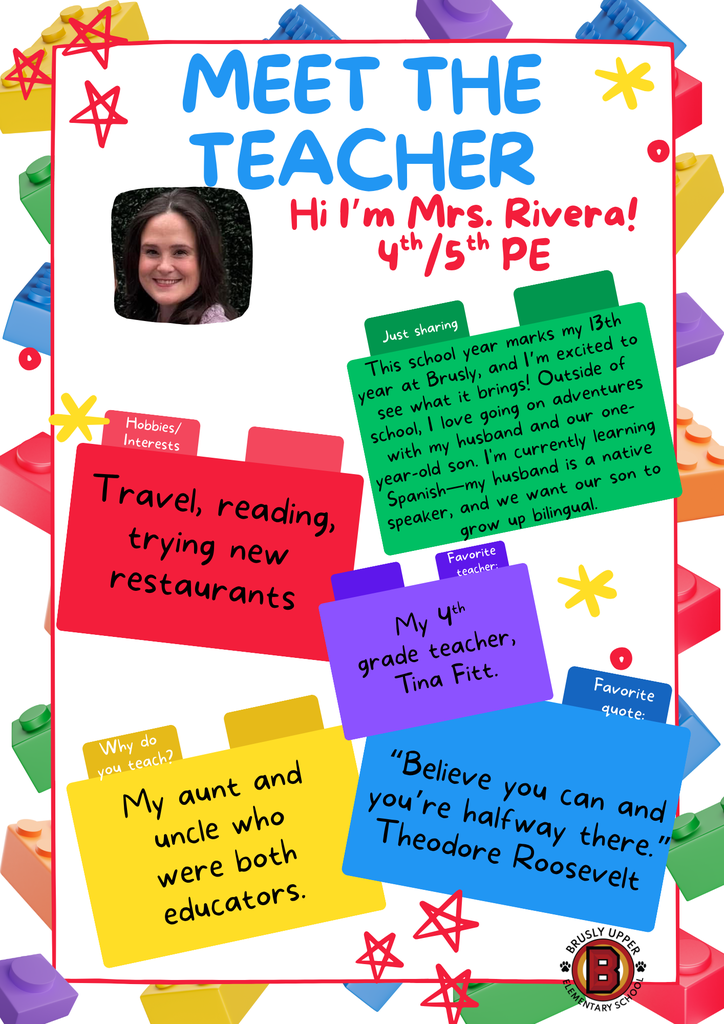 MEET THE
TEACHER
Hi I'm Mrs. Rivera!
4th/5th PE
Just sharing
This school year marks my 13th
year at Brusly, and I'm excited to
see what it brings! Outside of
school, I love going on adventures
with my husband and our one-
year-old son. I'm currently learning
Spanish—my husband is a native
speaker, and we want our son to
grow up bilingual.
Hobbies/
Interests
Travel, reading,
trying new
restaurants
Favorite
teacher:
My 4th
grade teacher,
Tina Fitt.
Favorite
quote:
"Believe you can and
you're halfway there."
Theodore Roosevelt
Why do
you teach?
My aunt and
uncle who
were both
educators.
BRUSLY UPPER
B
ELEMENTARY SCHOOL